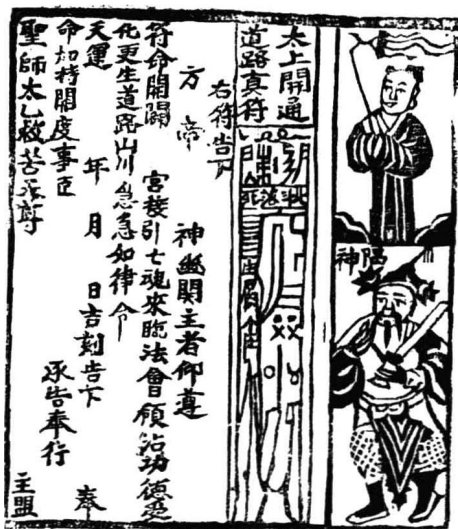 神
太上開通
道路真符
右符告下
方 帝 神幽関主者仰尊
符命開闢 宮接引七魂來臨法會領沾功德
化更生道路山川急急如律令
天運 年 月 日吉刻告下
承告奉行 奉
命加持開度事臣
聖師太乙救苦天尊 主盟